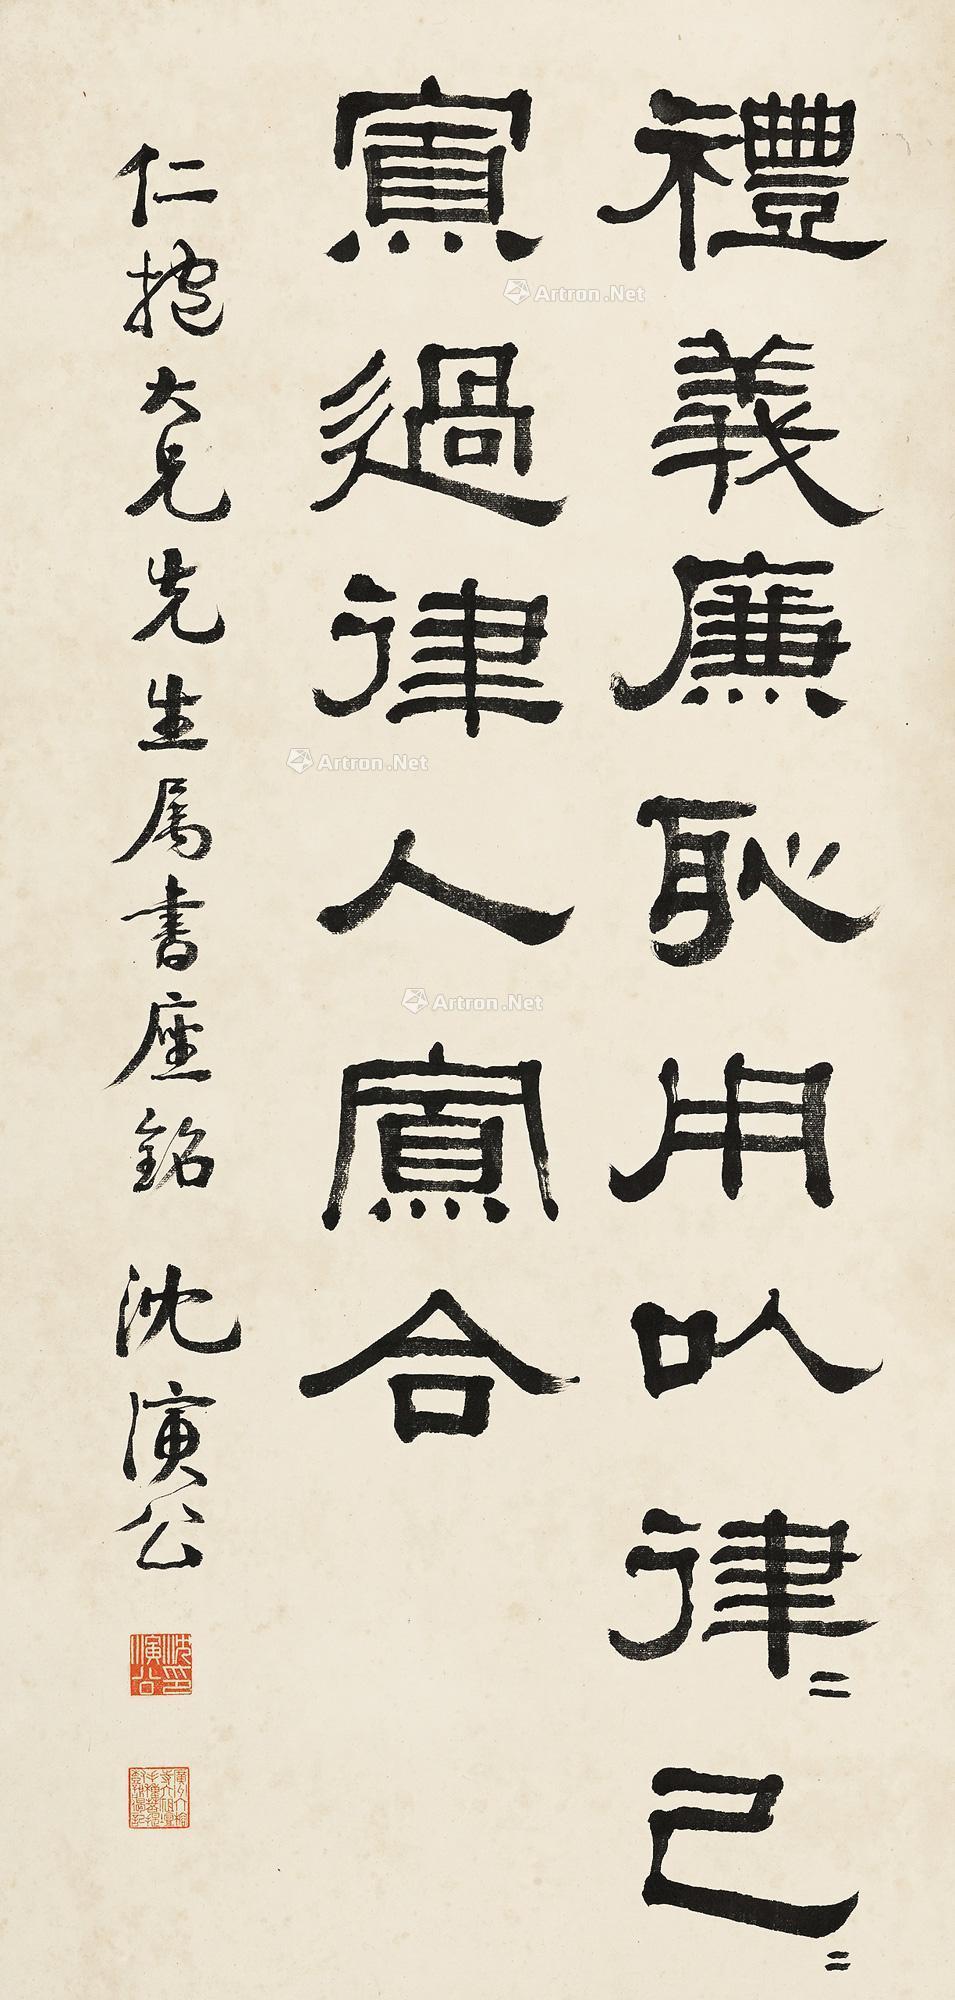 禮義廉恥用以律〻己〻
寡過律人寡合
仁抱大兄先生属書座銘 沈演公
沈印演公
Artron.Net
Artron.Net
Artron.Net